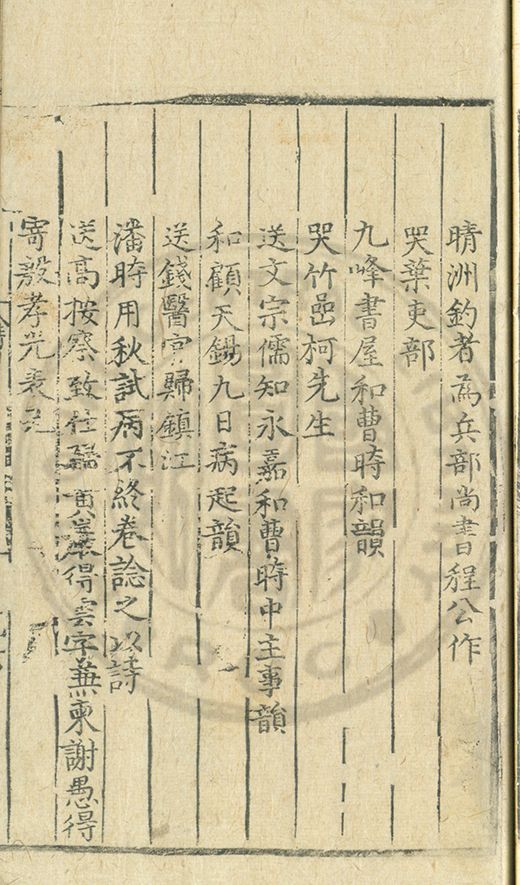 晴洲釣者爲兵部尚書程公作
哭葉吏部
九峰書屋和曹時和韻
哭竹嵓柯先生
送文宗儒知永嘉和曹時中主事韻
和顧天錫九日病起韻
送錢醫官歸鎮江
潘時用秋試病不終卷諗之以詩
送高按察致仕 黃 得雲字兼柬謝愚得
寄殷孝光表兄